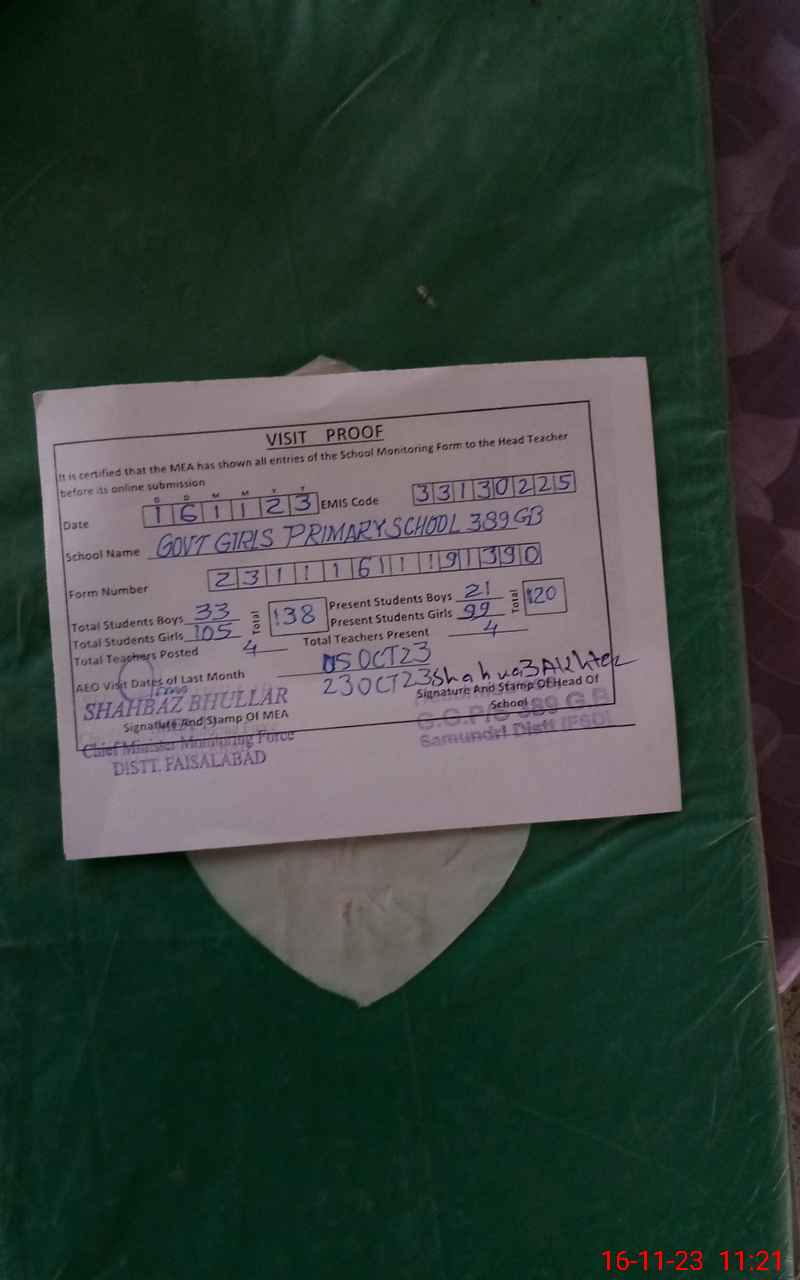 VISIT PROOF
It is certified that the MEA has shown all entries of the School Monitoring Form to the Head Teacher
before its online submission
D D M M Y Y
Date 161123 EMIS Code 33130225
School Name GOVT GIRLS PRIMARY SCHOOL 389 GB
Form Number 23111611191390
Total Students Boys 33 Total 138 Present Students Boys 21 Total 120
Total Students Girls 105 Present Students Girls 99
Total Teachers Posted 4 Total Teachers Present 4
AEO Visit Dates of Last Month 05 OCT 23
23 OCT 23 Shahnaz Akhter
SHAHBAZ BHULLAR
Signature And Stamp Of MEA
Signature And Stamp Of Head Of
School
Chief Minister Monitoring Force
DISTT. FAISALABAD
G.G.P/S 389 G.B
Samundri Distt (FSD)
16-11-23 11:21